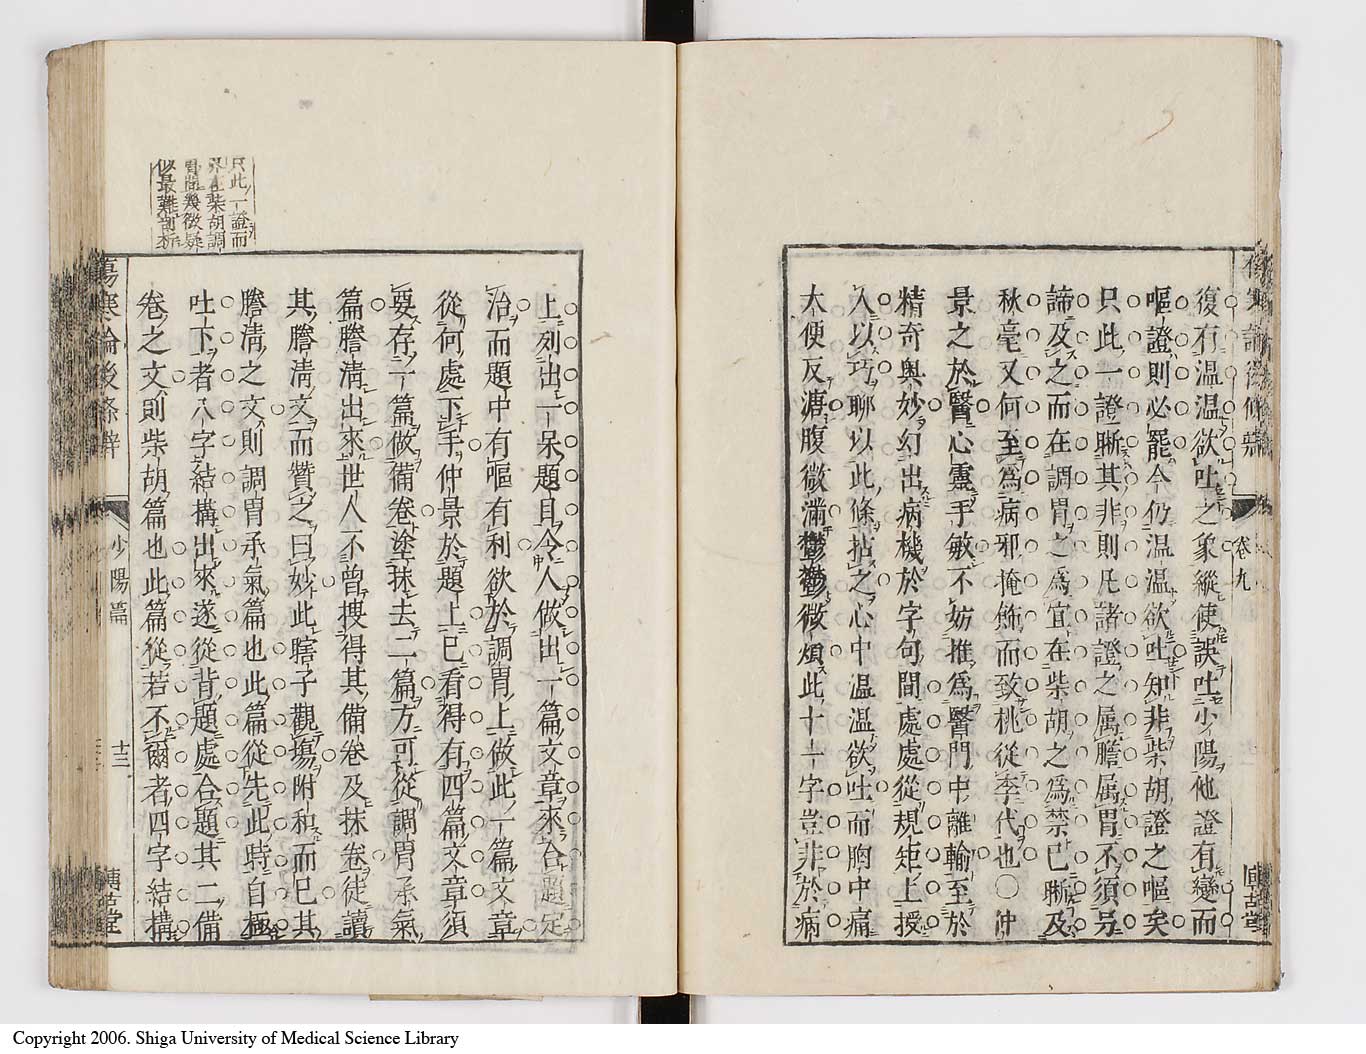 卷九
復有温温欲吐之象縱使誤吐少陽他證有變而
嘔證則必罷今仍温温欲吐知非柴胡證之嘔矣
只此一證晰其非則凡諸證之属膽属胃不須另
諦及之而在調胃之爲宜在柴胡之爲禁已晰及
秋毫又何至爲病邪掩飾而致桃從李代也〇仲
景之於醫心靈手敏不妨推爲醫門中離輸至於
精奇奥妙幻出病機於字句間處處從規矩上授
人以巧聊以此條拈之心中温温欲吐而胸中痛
大便反溏腹微滿鬱鬱微煩此十七字豈非於病
上列出一呆題目令人做出一篇文章來合題定
治而題中有嘔有利欲於調胃上做此一篇文章
從何處下手仲景於題上已看得有四篇文章須
要存二篇做備卷塗抹去二篇方可從調胃承氣
篇謄淸出來世人不曾搜得其備卷及抹卷徒讀
其謄淸文而贊之曰妙此瞎子觀塲附和而已其
謄淸之文則調胃承氣篇也此篇從先此時自極
吐下者八字結構出來遂從背題處合題其二備
卷之文則柴胡篇也此篇從若不爾者四字結構
只此一證而
柴胡調
胃間幾微疑
似最難剖析
傷寒論後條辨
少陽篇
十三